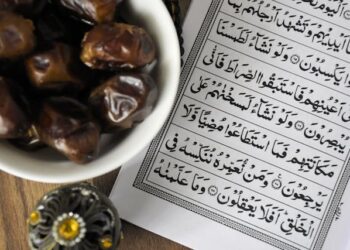 أَيْدِيهِمْ وَتَشْهَدُ أَرْجُلُهُمْ بِمَا
يَكْسِبُونَ ۝ وَلَوْ نَشَاءُ لَطَمَسْنَا
أَعْيُنِهِمْ فَاسْتَبَقُوا الصِّرَاطَ فَأَنَّىٰ
يُبْصِرُونَ ۝ وَلَوْ نَشَاءُ لَمَسَخْنَٰهُمْ عَلَىٰ
مَكَانَتِهِمْ فَمَا اسْتَطَٰعُوا مُضِيًّا وَلَا
يَرْجِعُونَ ۝ وَمَنْ نُعَمِّرْهُ نُنَكِّسْهُ فِي
الْخَلْقِ أَفَلَا يَعْقِلُونَ ۝ وَمَا عَلَّمْنَٰهُ